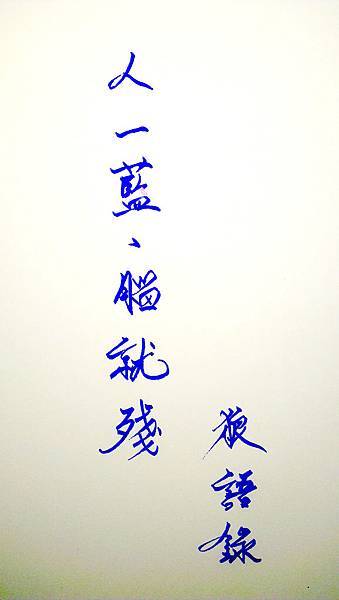 人一藍、腦就殘
狠語錄